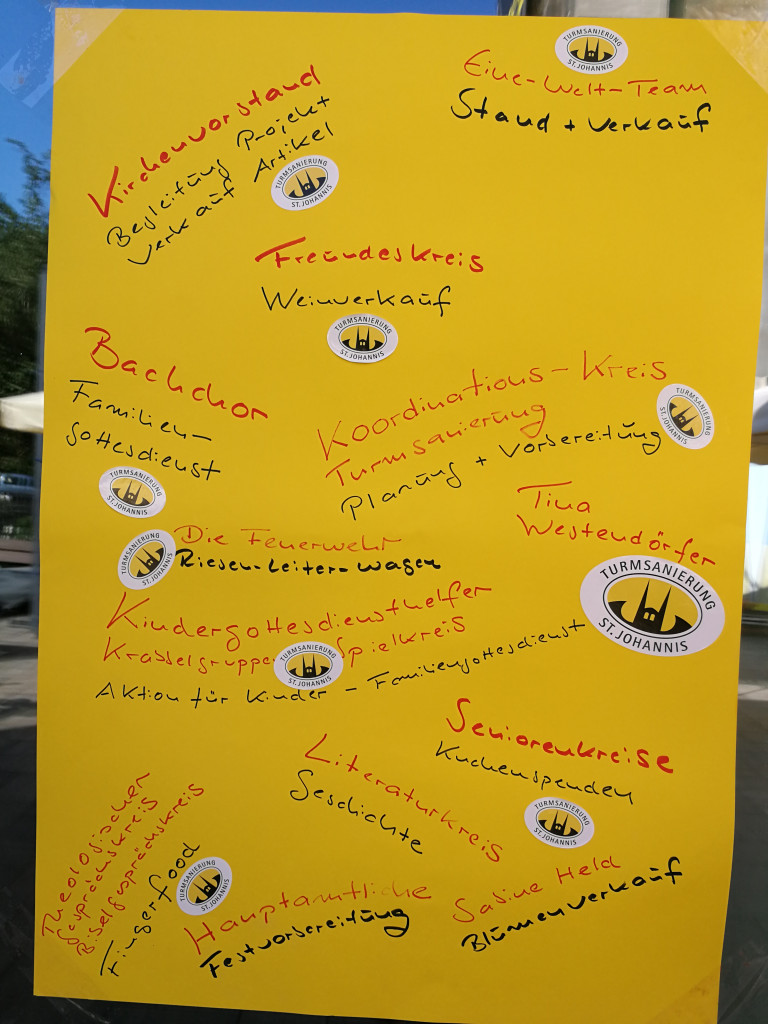 TURMSANIERUNG
ST. JOHANNIS
Eine-Welt-Team
Stand + Verkauf
Kirchenvorstand
Begleitung Projekt
Verkauf Artikel
TURMSANIERUNG
ST. JOHANNIS
Freundeskreis
Weinverkauf
TURMSANIERUNG
ST. JOHANNIS
Bachchor
Familien-
gottesdienst
TURMSANIERUNG
ST. JOHANNIS
Koordinations-Kreis
Turmsanierung
Planung + Vorbereitung
TURMSANIERUNG
ST. JOHANNIS
Tina
Westendörfer
TURMSANIERUNG
ST. JOHANNIS
Die Feuerwehr
Riesen-Leiter-Wagen
TURMSANIERUNG
ST. JOHANNIS
Kindergottesdiensthelfer
Krabbelgruppe Spielkreis
TURMSANIERUNG
ST. JOHANNIS
Aktion für Kinder - Familiengottesdienst
Seniorenkreise
Kuchenspenden
TURMSANIERUNG
ST. JOHANNIS
Literaturkreis
Geschichte
Theologischer
Gesprächskreis
Bibelgesprächskreis
Fingerfood
TURMSANIERUNG
ST. JOHANNIS
Hauptamtliche
Festvorbereitung
Sabine Held
Blumenverkauf